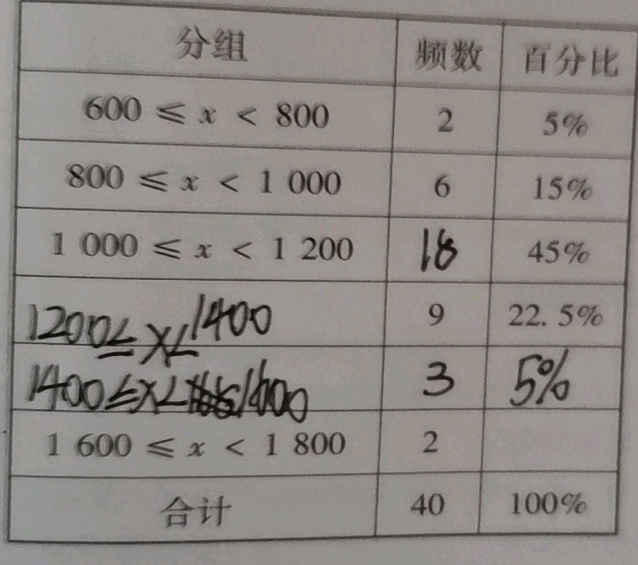 分组 频数 百分比
600 ≤ x < 800 2 5%
800 ≤ x < 1 000 6 15%
1 000 ≤ x < 1 200 18 45%
1200≤x<1400 9 22.5%
1400≤x<1600 3 5%
1 600 ≤ x < 1 800 2
合计 40 100%